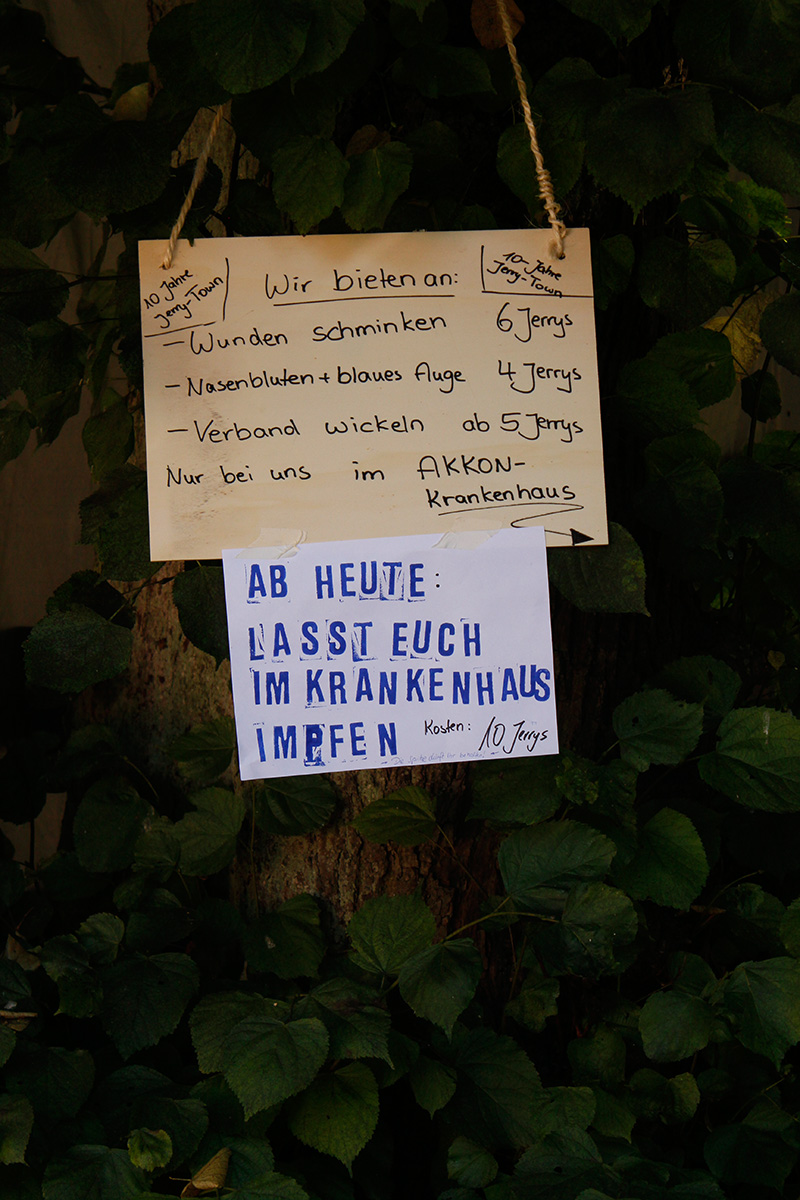 10 Jahre
Jerry-Town
Wir bieten an:
10-Jahre
Jerry-Town
- Wunden schminken 6 Jerrys
- Nasenbluten + blaues Auge 4 Jerrys
- Verband wickeln ab 5 Jerrys
Nur bei uns im AKKON-
Krankenhaus
AB HEUTE:
LASST EUCH
IM KRANKENHAUS
IMPFEN Kosten: 10 Jerrys